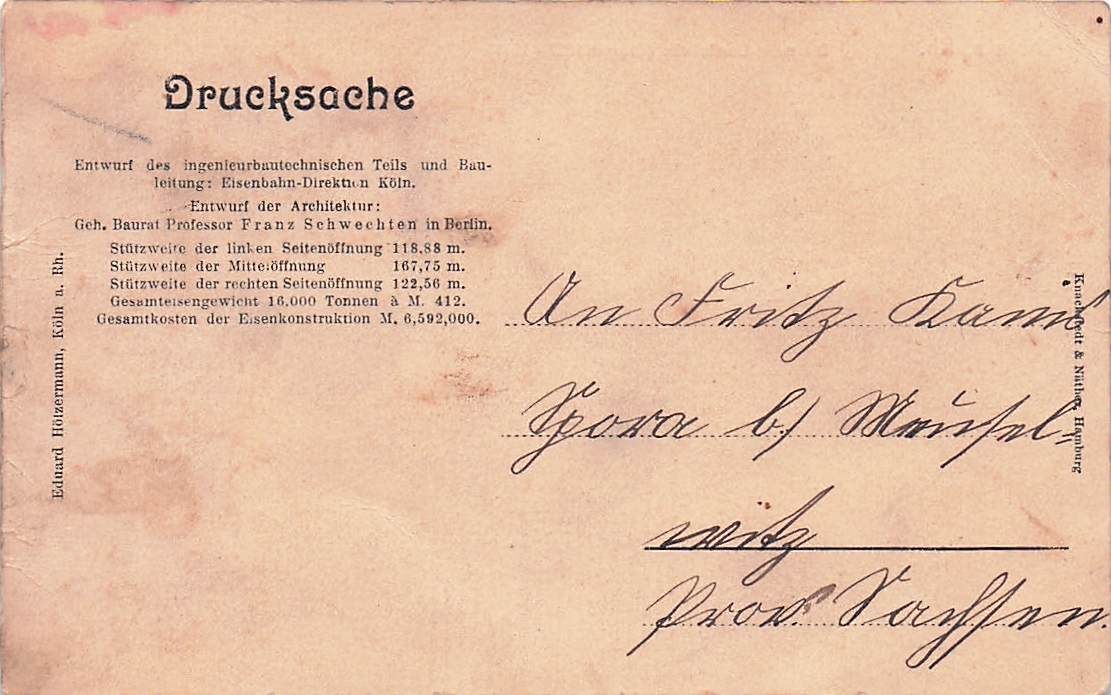 Drucksache
Entwurf des ingenieurbautechnischen Teils und Bau-
leitung: Eisenbahn-Direktion Köln.
Entwurf der Architektur:
Geh. Baurat Professor Franz Schwechten in Berlin.
Stützweite der linken Seitenöffnung 118.88 m.
Stützweite der Mittelöffnung 167,75 m.
Stützweite der rechten Seitenöffnung 122,56 m.
Gesamteisengewicht 16.000 Tonnen à M. 412.
Gesamtkosten der Eisenkonstruktion M. 6,592,000.
Eduard Hölzermann, Köln a. Rh.
An Fritz
Spora b/ Meusel-
witz
Prov. Sachsen.
Knackstedt & Näther, Hamburg